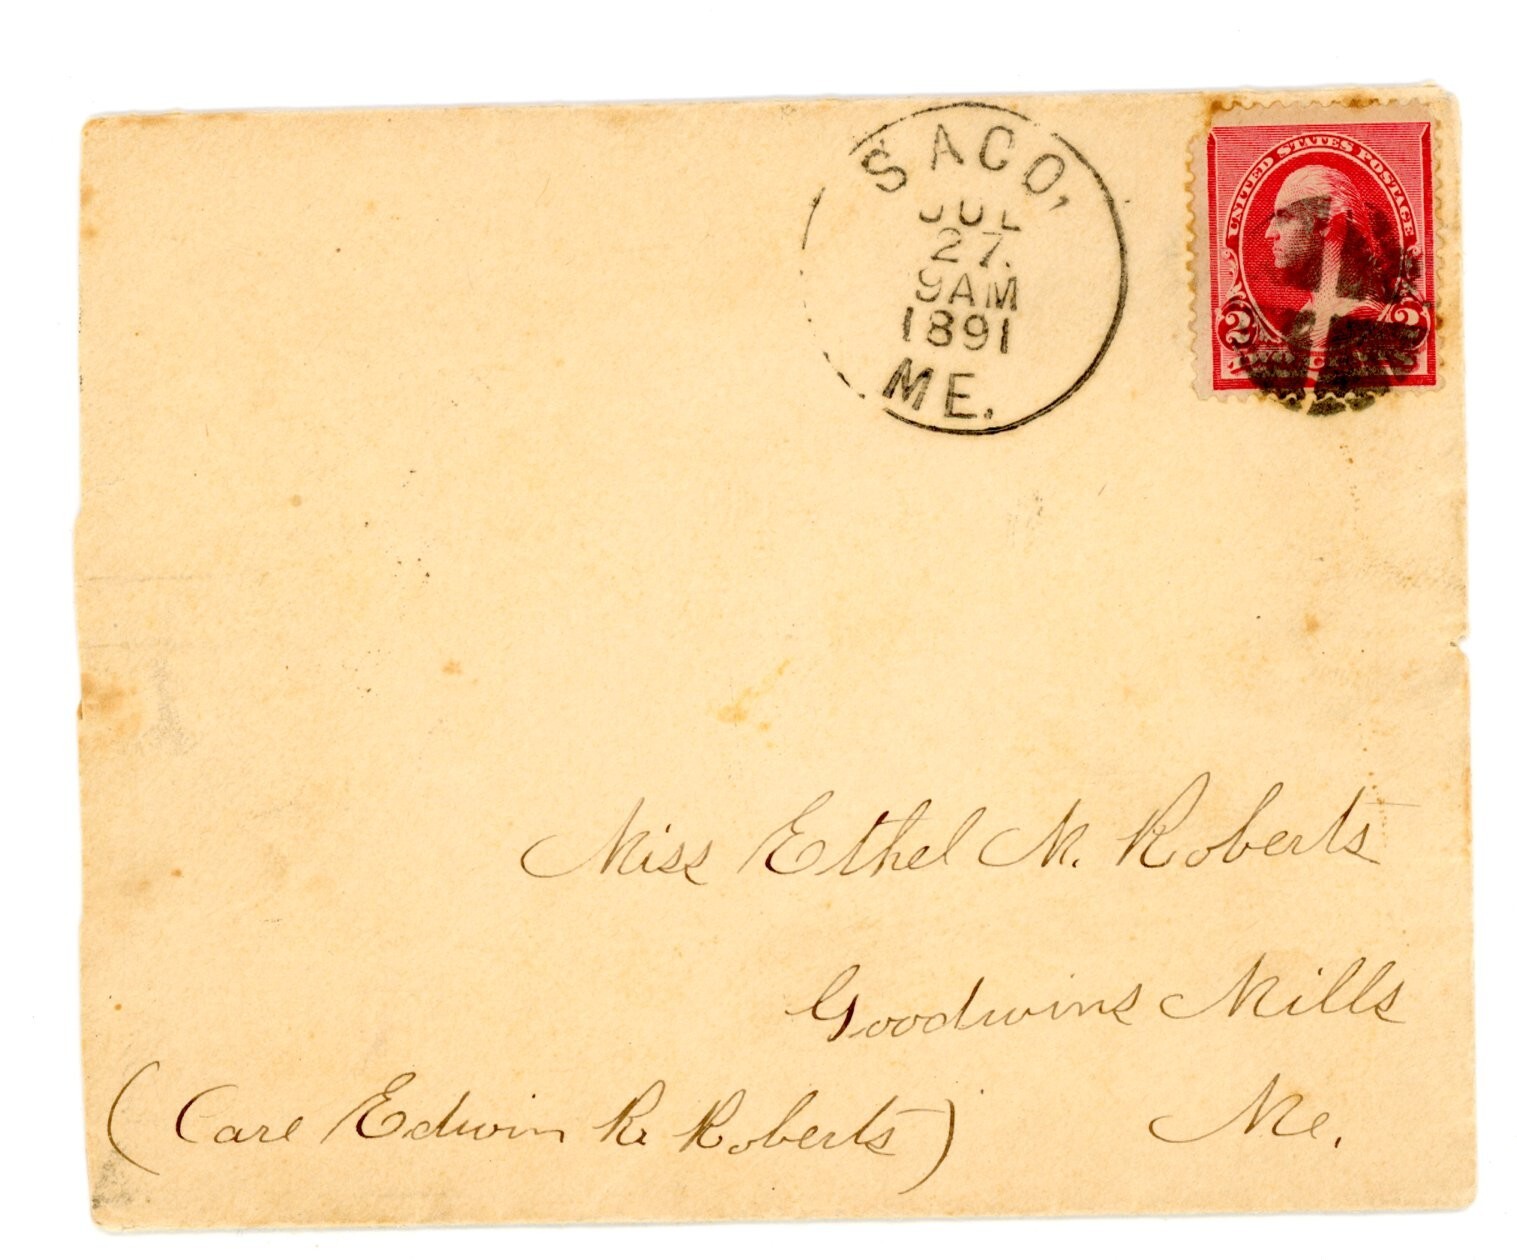 SACO,
JUL
27.
9AM
1891
ME.
UNITED STATES POSTAGE
2 2
TWO CENTS
Miss Ethel M. Roberts
Goodwins Mills
Me.
(Care Edwin R. Roberts)